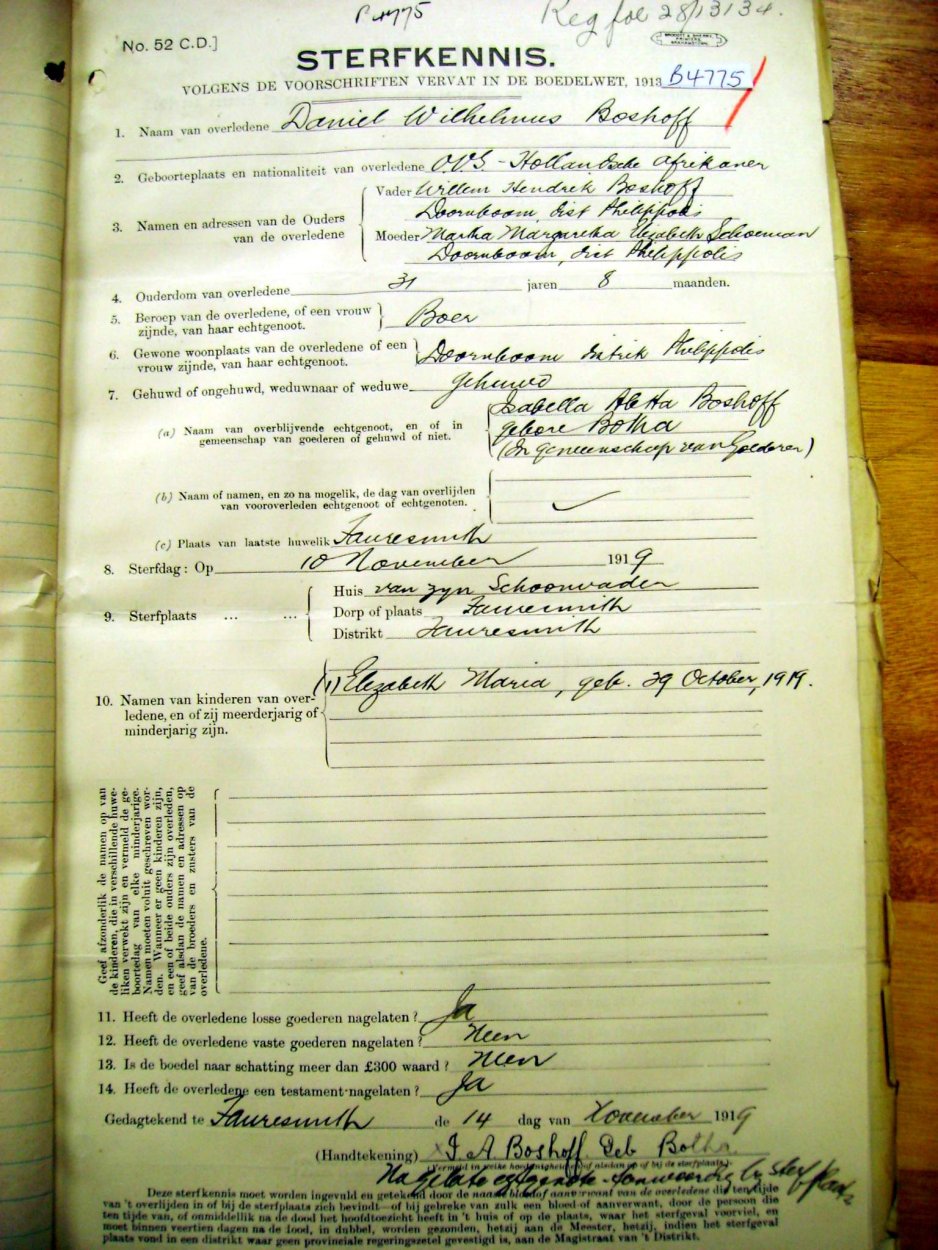 B4775
Reg foe 28/13134.
No. 52 C.D.]
STERFKENNIS.
VOLGENS DE VOORSCHRIFTEN VERVAT IN DE BOEDELWET, 1913 B4775
1. Naam van overledene Daniel Wilhelmus Boshoff
2. Geboorteplaats en nationaliteit van overledene O.V.S. - Hollandsche Afrikaner
3. Namen en adressen van de Ouders van de overledene
Vader Willem Hendrik Boshoff
Doornboom, dist Philippolis
Moeder Martha Margaretha Elizabeth Schoeman
Doornboom, dist Philippolis
4. Ouderdom van overledene 31 jaren 8 maanden.
5. Beroep van de overledene, of een vrouw
zijnde, van haar echtgenoot. Boer
6. Gewone woonplaats van de overledene of een
vrouw zijnde, van haar echtgenoot. Doornboom distrik Philippolis
7. Gehuwd of ongehuwd, weduwnaar of weduwe gehuwd
(a) Naam van overblijvende echtgenoot, en of in
gemeenschap van goederen of gehuwd of niet.
Isabella Aletta Boshoff
gebore Botha
(In gemeenschap van Goederen)
(b) Naam of namen, en zo na mogelik, de dag van overlijden
van vooroverleden echtgenoot of echtgenoten.
(c) Plaats van laatste huwelik Fauresmith
8. Sterfdag: Op 10 November 1919
9. Sterfplaats ... ...
Huis van zyn Schoonvader
Dorp of plaats Fauresmith
Distrikt Fauresmith
10. Namen van kinderen van over-
ledene, en of zij meerderjarig of
minderjarig zijn.
(1) Elizabeth Maria, geb. 29 October, 1919.
Geef afzonderlik de namen op van
de kinderen, die in verschillende huwe-
liken verwekt zijn en vermeld de ge-
boortedag van elke minderjarige.
Namen moeten voluit geschreven wor-
den. Wanneer er geen kinderen zijn,
en een of beide ouders zijn overleden,
geef alsdan de namen en adressen op
van de broeders en zusters van de
overledene.
11. Heeft de overledene losse goederen nagelaten? Ja
12. Heeft de overledene vaste goederen nagelaten? Neen
13. Is de boedel naar schatting meer dan £300 waard? Neen
14. Heeft de overledene een testament nagelaten? Ja
Gedagtekend te Fauresmith de 14 dag van November 1919
(Handtekening) I A Boshoff Geb Botha
Nagelate echtgenote - aanwezig by sterfplaats
Deze sterfkennis moet worden ingevuld en getekend door de naaste bloed of aanverwant van de overledene die ten tijde
van 't overlijden in of bij de sterfplaats zich bevindt—of bij gebreke van zulk een bloed of aanverwant, door de persoon die
ten tijde van, of onmiddellik na de dood het hoofdtoezicht heeft in 't huis of op de plaats, waar het sterfgeval voorviel, en
moet binnen veertien dagen na de dood, in dubbel, worden gezonden, hetzij aan de Meester, hetzij, indien het sterfgeval
plaats vond in een distrikt waar geen provinciale regeringszetel gevestigd is, aan de Magistraat van 't Distrikt.